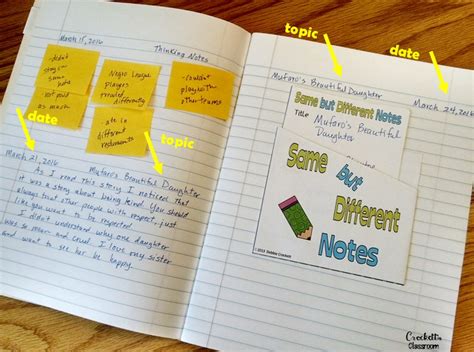 March 15, 2016
Thinking Notes
-didn't
stay in
same
hotel
not paid
as much
Negro League
players
treated
differently
-couldn't
play with
other teams
ate in
different
restaurants
date
topic
March 21, 2016
Mufaro's Beautiful Daughter
As I read this story I noticed that
it was a story about being kind. You should
always treat other people with respect, just
like you want to be respected.
I didn't understand why one daughter
was so mean and cruel. I love my sister
and want to see her be happy.
topic
date
Mufaro's Beautiful Daughter
March 24, 2016
Same but Different Notes
Title Mufaro's Beautiful
Daughter
Same
but
Different
Notes
©2015 Debbie Crockett
Crockett's
Classroom